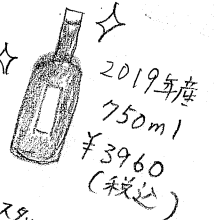 2019年産
750ml
¥3960
(税込)
スタッ